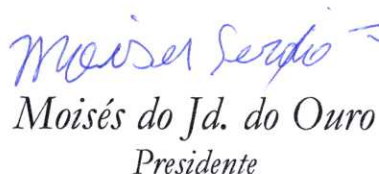 Moisés Sergio
Moisés do Jd. do Ouro
Presidente